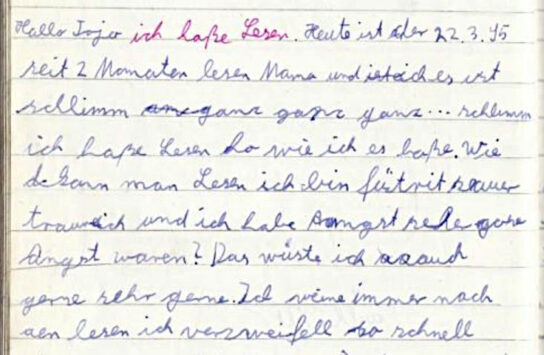 Hallo Jojo ich haße Lesen. Heute ist der 22.3.95
seit 2 Momaten lesen Mama und ich es ist
schlimm ganz ganz ganz ... schlimm
ich haße Lesen ho wie ich es haße. Wie
kann man Lesen ich bin
und ich habe Angst sehr gose
Angst waren? Das wüste ich aaauch
gerne sehr gerne. Ich weine immer nach
den lesen ich verzweifell so schnell